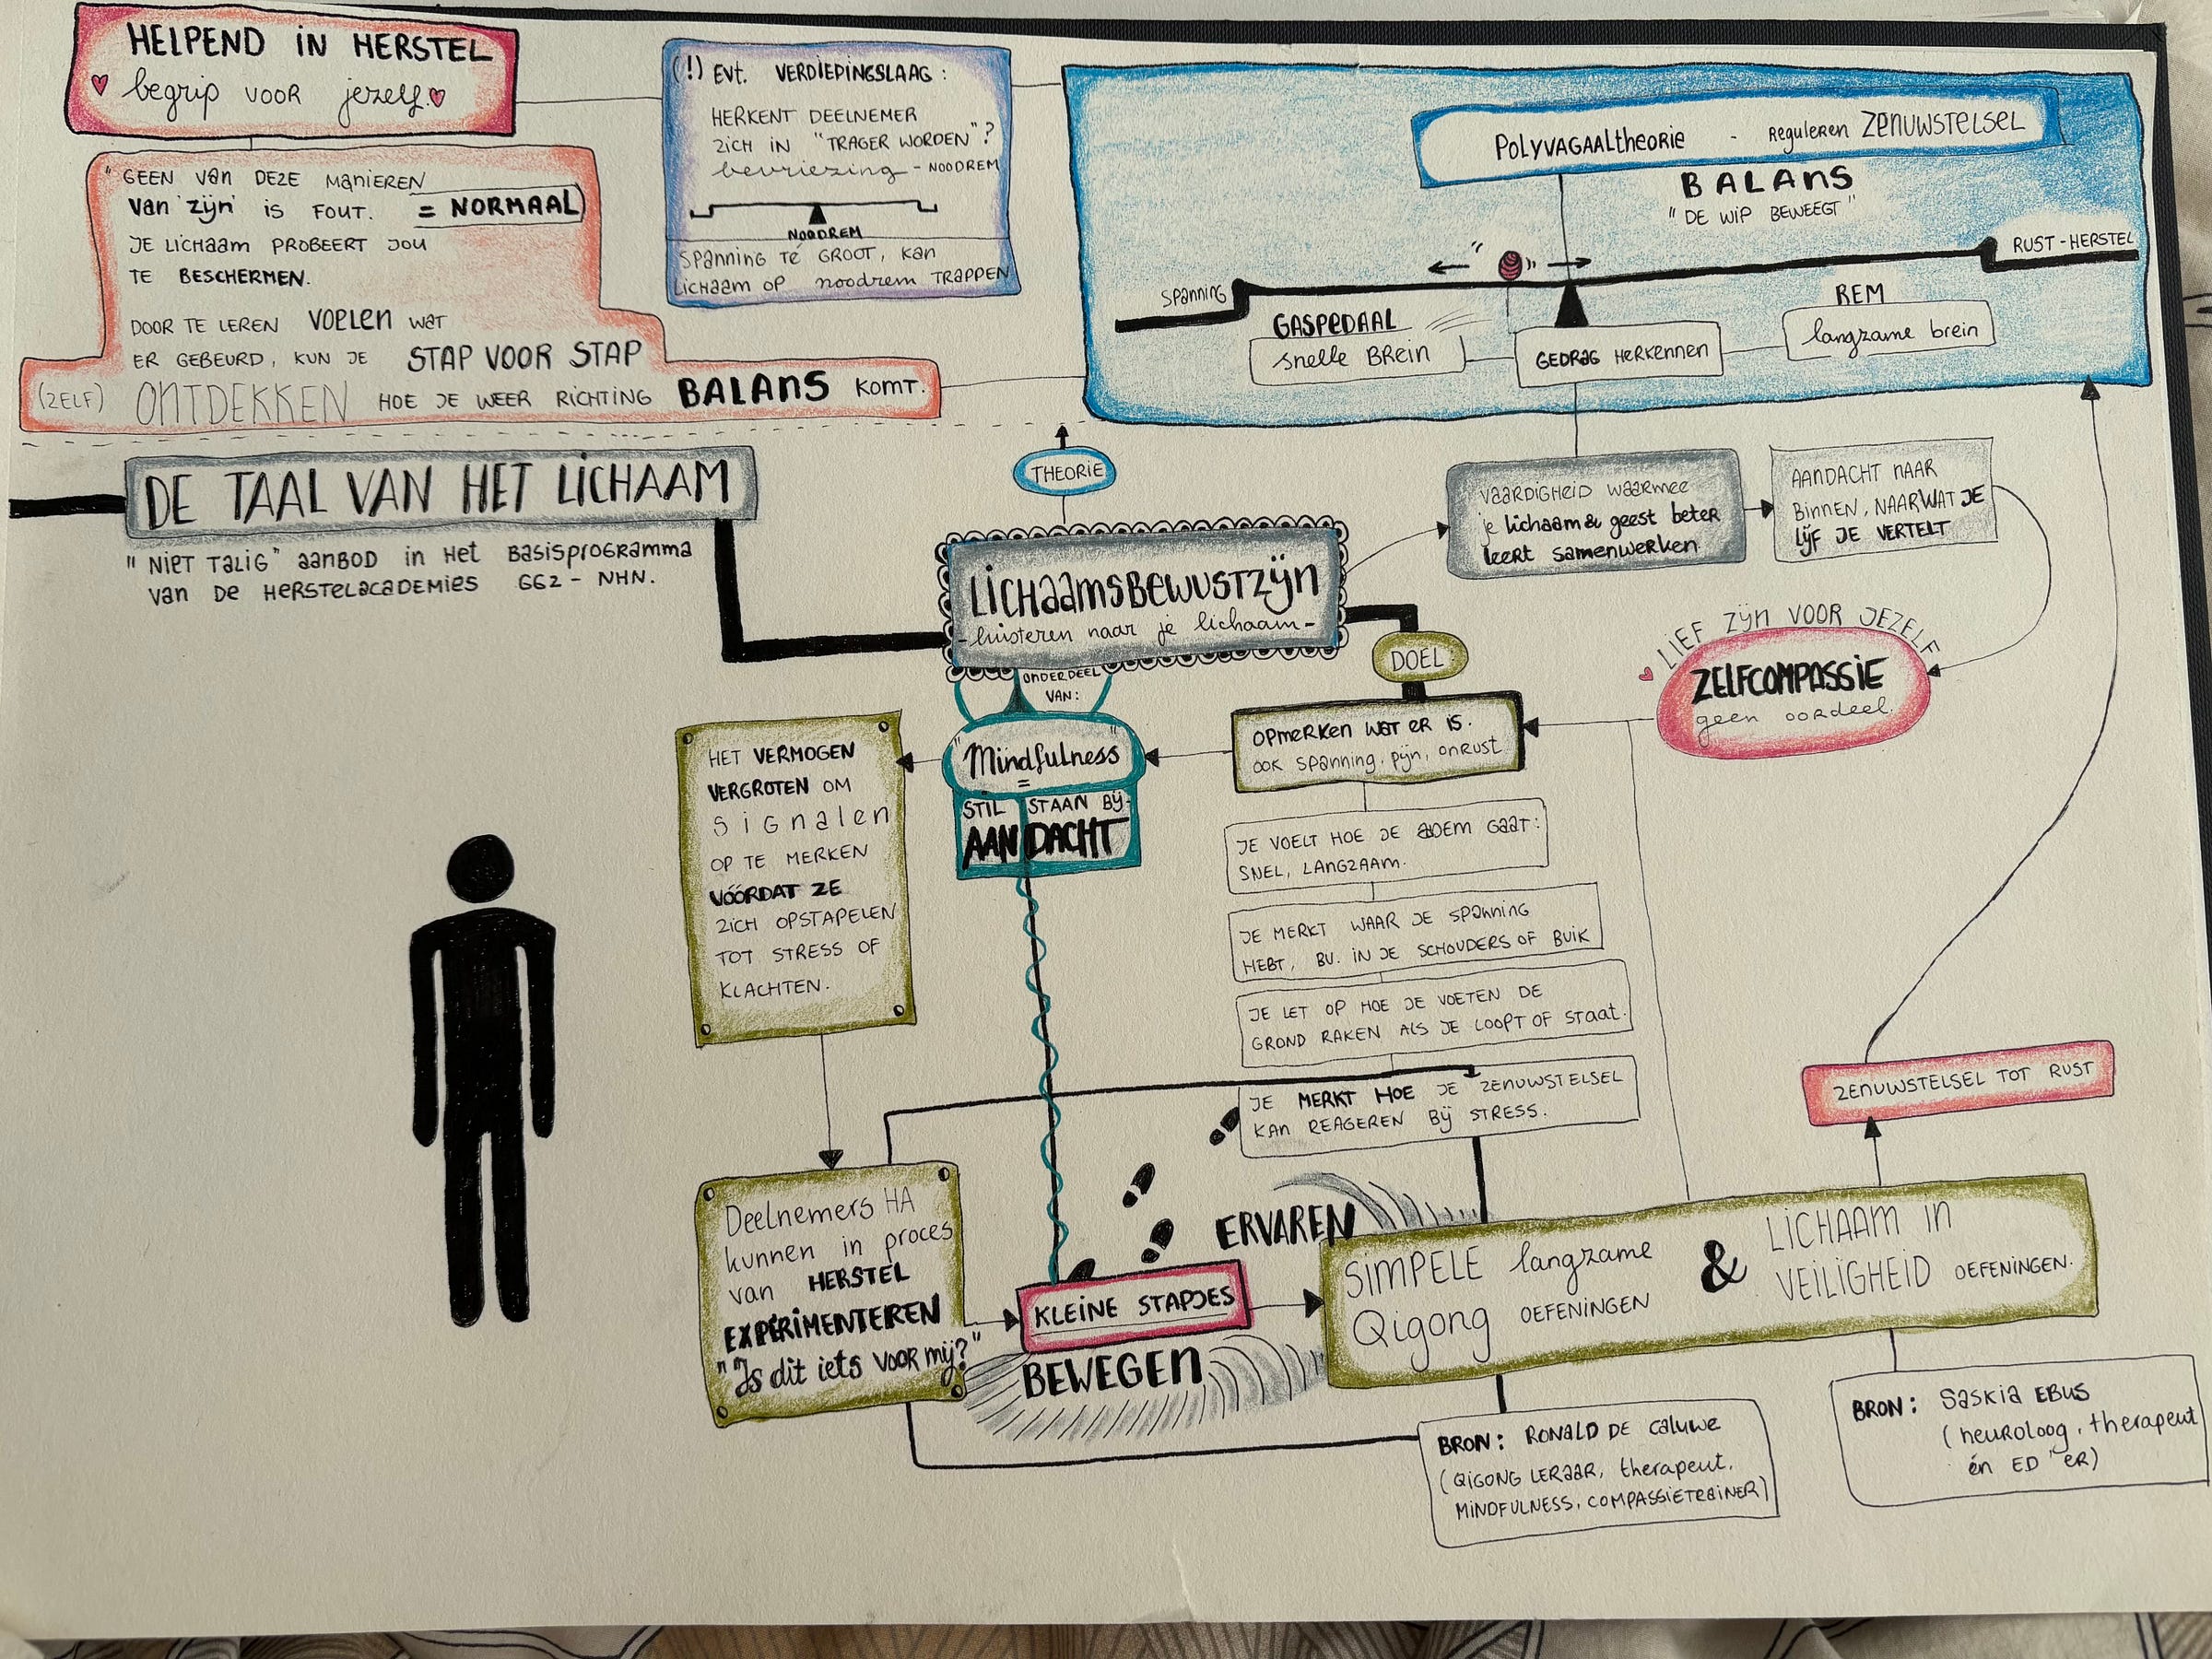 HELPEND iN HERSTEL
begrip voor jezelf.
"GEEN van DEZE manieren
van 'zijn' is FOUT. = NORMAAL)
JE LiCHaam PROBEERT JOU
TE BESCHERMEN.
DOOR TE LEREN VOELEN WAT
ER GEBEURD, KUN JE STAP VOOR STAP
(ZELF) ONTDEKKEN HOE JE WEER RICHTING BALANS KOMT.
(!) EVT. VERDIEPINGSLAAG:
HERKENT DEELNEMER
ZICH IN "TRAGER WORDEN"?
bevriezing - NOODREM
NOODREM
SPANNING TÉ GROOT, KAN
LICHAAM OP noodrem TRAPPEN
POLYVAGAALtheoRie - Reguleren ZENUWSTELSEL
BALANS
"DE WIP BEWEEGT"
RUST-HERSTEL
SPANNING
GASPEDAAL
snelle BRein
GEDRAG HERKENNEN
REM
langzame brein
DE TAAL VAN HET LICHAAM
"NIET TALIG" aanBOD in HET Basisprogramma
van De HERSTELacaDEMIES GGZ - NHN.
THEORIE
LICHaamsBEWUSTZIJN
- luisteren naar je lichaam -
VaaRDiGHeiD waarmee
je lichaam & geest beter
leert samenwerken
AANDACHT naar
BINNEN, NAAR WAT JE
LIJF JE VERTELT
LIEF ZIJN VOOR JEZELF
ZELFCOMPASSIE
geen oordeel.
DOEL
OPMERKEN WAT ER IS.
OOK SPANNING, PIJN, ONRUST
ONDERDEEL
VAN:
"Mindfulness"
=
STIL STAAN BIJ
AANDACHT
HET VERMOGEN
VERGROTEN OM
SIGNALEN
OP TE MERKEN
VÓÓRDAT ZE
ZICH OPSTAPELEN
TOT STRESS OF
KLACHTEN.
JE VOELT HOE JE ADEM GAAT:
SNEL, LANGZAAM.
JE MERKT WAAR JE SPANNING
HEBT, BV. IN JE SCHOUDERS OF BUIK
JE LET OP HOE JE VOETEN DE
GROND RAKEN ALS JE LOOPT OF STAAT.
JE MERKT HOE JE ZENUWSTELSEL
KAN REAGEREN BIJ STRESS.
ZENUWSTELSEL TOT RUST
Deelnemers HA
kunnen in proces
van HERSTEL
EXPERIMENTEREN
"Is dit iets VOOR mij?"
ERVAREN
KLEINE STAPJES
BEWEGEN
SIMPELE langzame
Qigong OEFENINGEN
&
LICHAAM IN
VEILIGHEID OEFENINGEN.
BRON: RONALD DE CALUWE
(QIGONG LERAAR, therapeut,
MINDFULNESS, COMPASSIETRAINER)
BRON: SASKIA EBUS
(neuroloog, therapeut
én ED'ER)